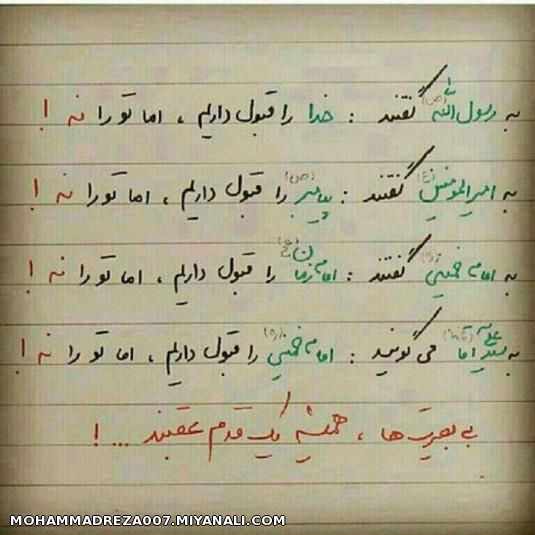 به رسول الله (ص) گفتند : خدا را قبول داریم ، اما تو را نه !
به امیرالمومنین (ع) گفتند : پیامبر (ص) را قبول داریم ، اما تو را نه !
به امام خمینی (ره) گفتند : امام زمان (عج) را قبول داریم ، اما تو را نه !
به سید علی آقا می گویند : امام خمینی (ره) را قبول داریم ، اما تو را نه !
بی بصیرت ها ، همیشه یک قدم عقبند ... !
MOHAMMADREZA007.MIYANALI.COM